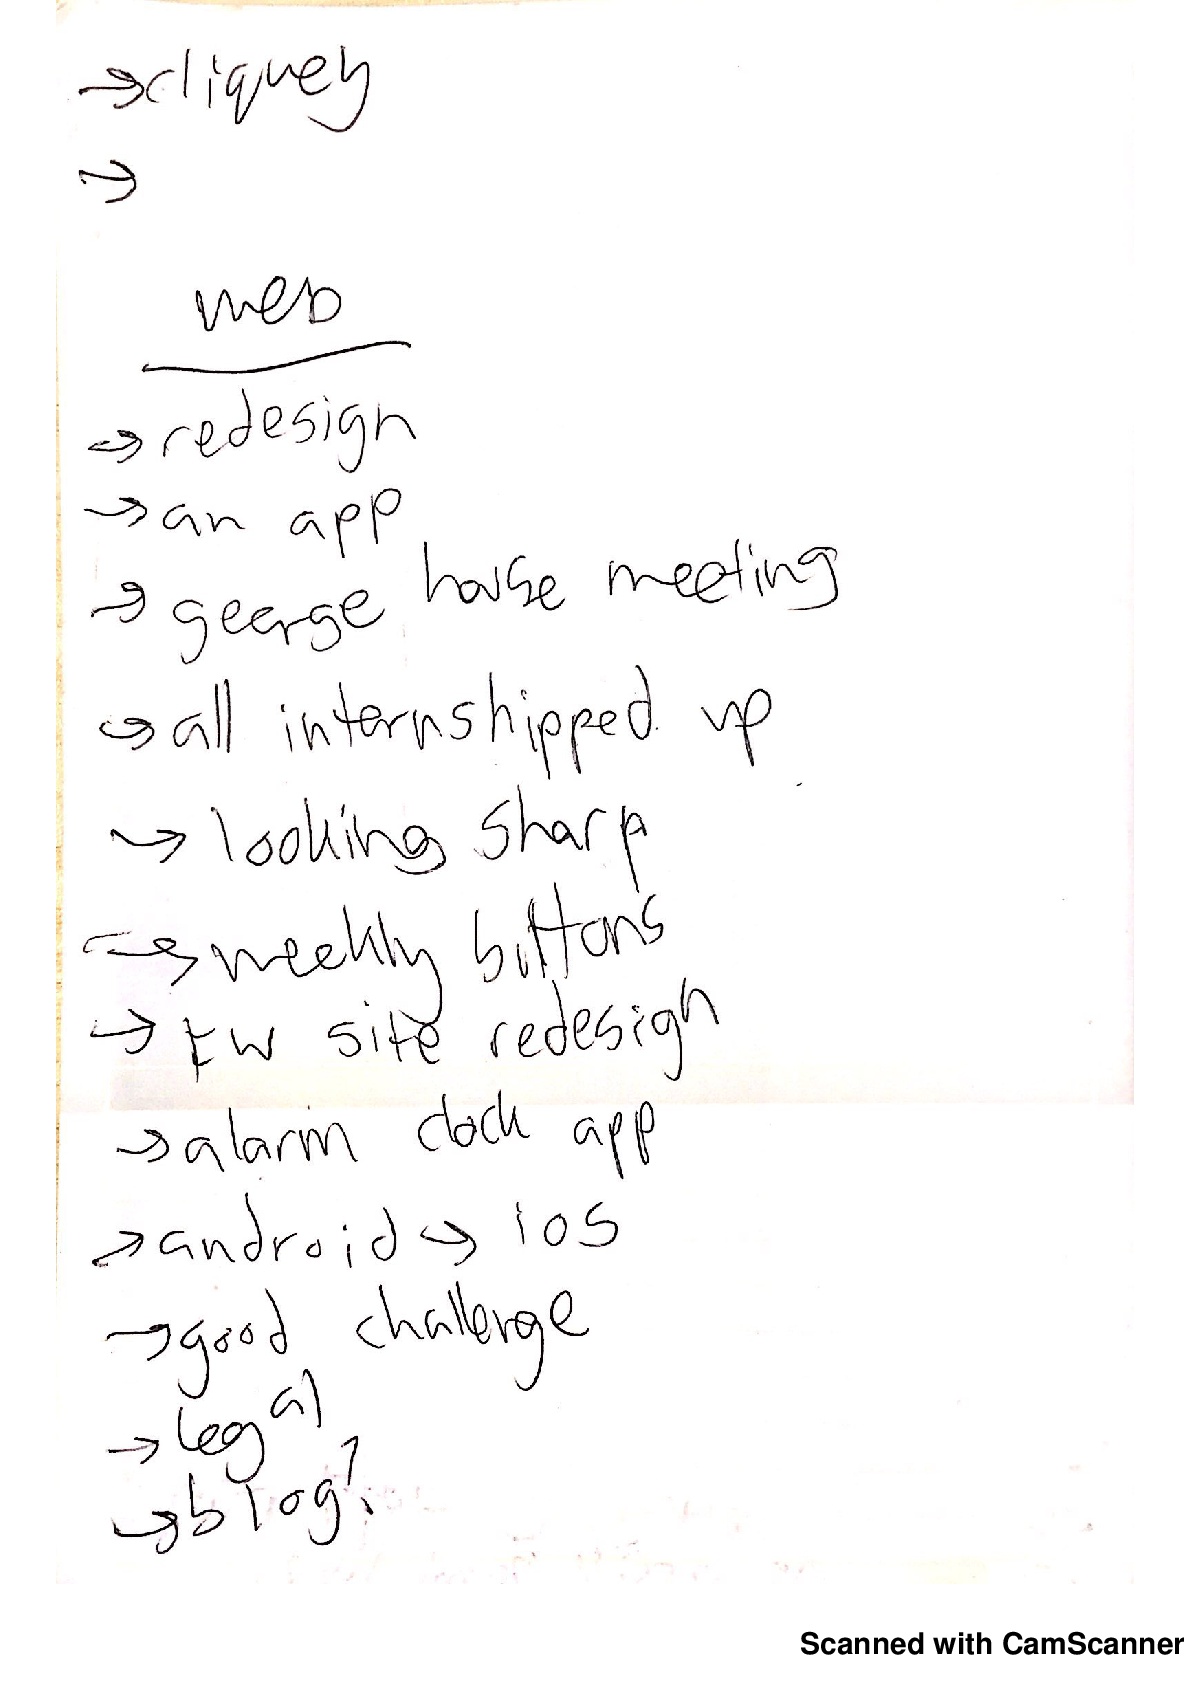 → cliquey
→
web
→ redesign
→ an app
→ george house meeting
→ all internshipped up
→ looking sharp
→ weekly buttons
→ tw site redesign
→ alarm clock app
→ android → ios
→ good challenge
→ legal
→ blog?
Scanned with CamScanner